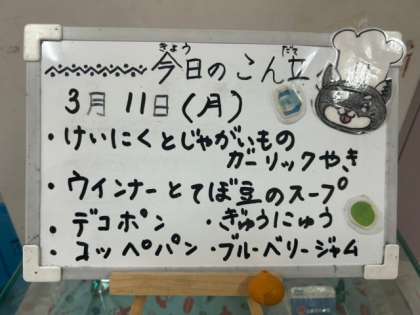 きょう だて
今日のこん立
3月 11日(月)
・けいにくとじゃがいもの
ガーリックやき
・ウインナーとてぼ豆のスープ
・デコポン ・ぎゅうにゅう
・コッペパン ・ブルーベリージャム